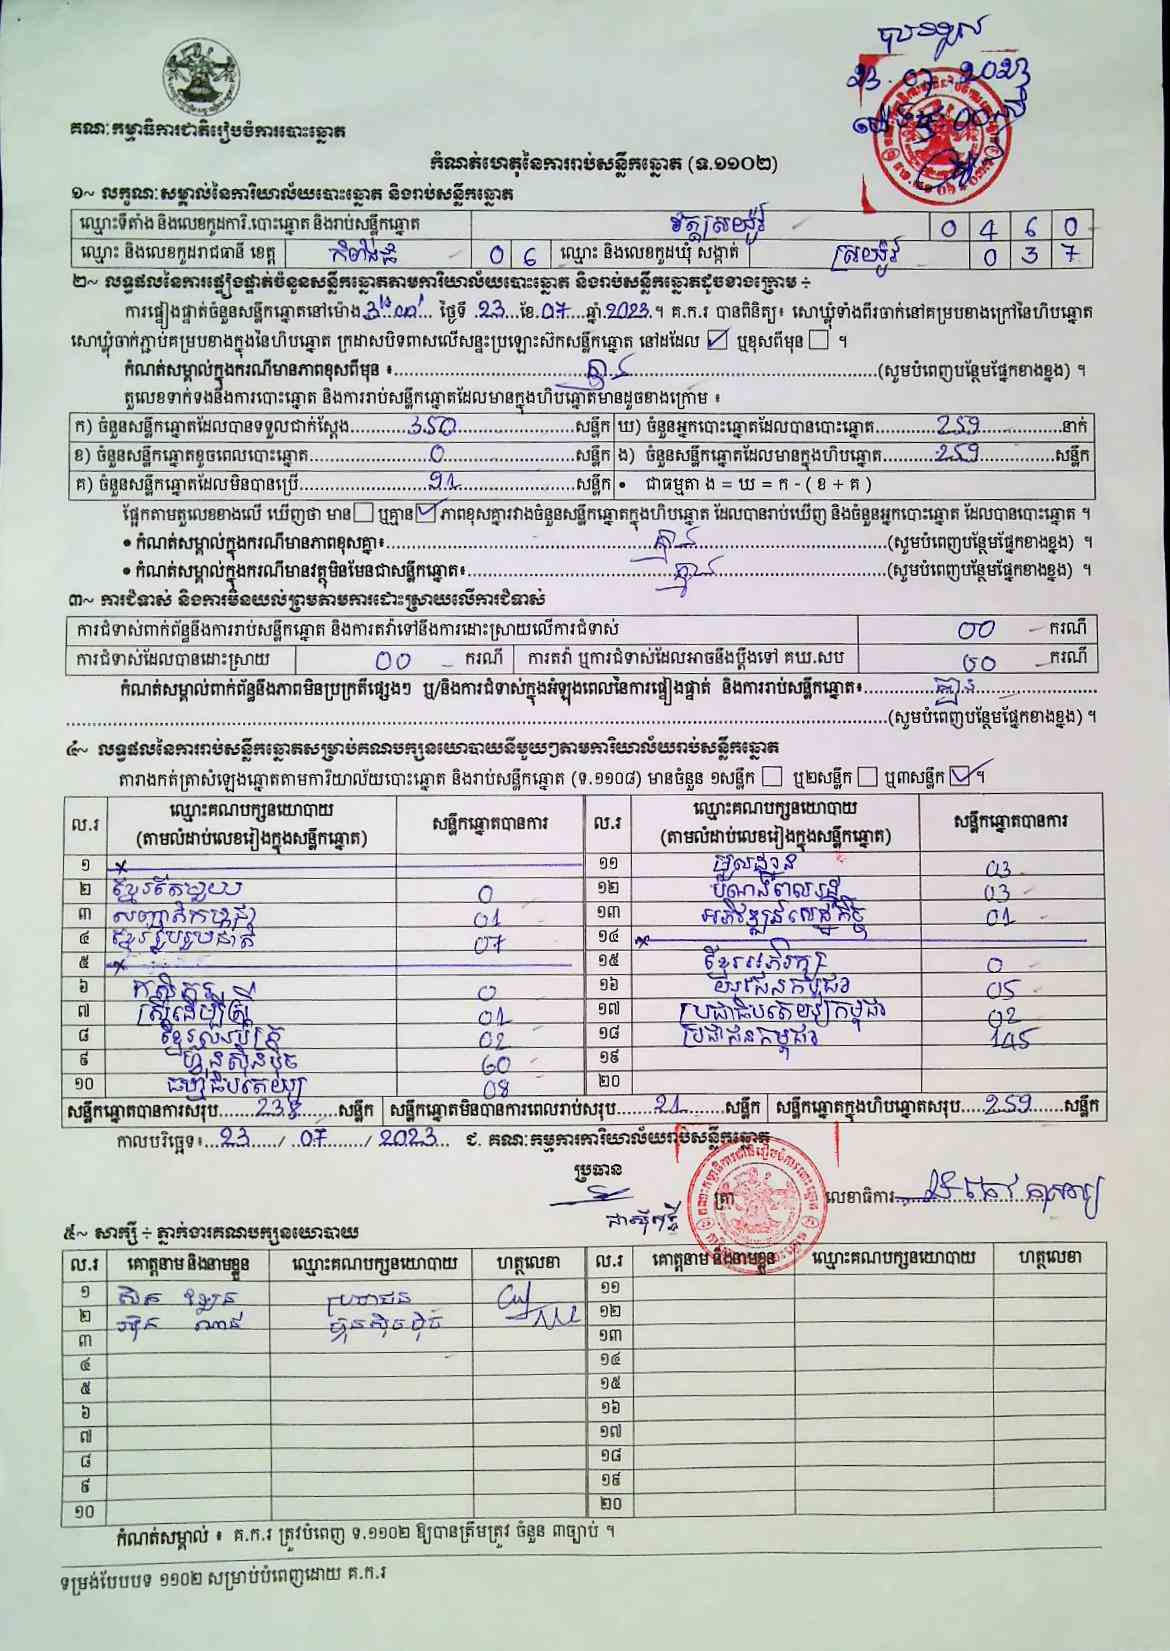 បានទទួល
23.07.2023
គណៈកម្មាធិការជាតិរៀបចំការបោះឆ្នោត
កំណត់ហេតុនៃការរាប់សន្លឹកឆ្នោត (ទ.១១០២)
១~ លក្ខណៈសម្គាល់នៃការិយាល័យបោះឆ្នោត និងរាប់សន្លឹកឆ្នោត
ឈ្មោះទីតាំង និងលេខកូដការិ.បោះឆ្នោត និងរាប់សន្លឹកឆ្នោត វត្តស្រយ៉ូវ 0 4 6 0
ឈ្មោះ និងលេខកូដរាជធានី ខេត្ត កំពង់ធំ 0 6 ឈ្មោះ និងលេខកូដឃុំ សង្កាត់ ស្រយ៉ូវ 0 3 7
២~ លទ្ធផលនៃការផ្ទៀងផ្ទាត់ចំនួនសន្លឹកឆ្នោតតាមការិយាល័យបោះឆ្នោត និងរាប់សន្លឹកឆ្នោតដូចខាងក្រោម ÷
ការផ្ទៀងផ្ទាត់ចំនួនសន្លឹកឆ្នោតនៅម៉ោង 3:00 ថ្ងៃទី 23 ខែ 07 ឆ្នាំ 2023 ។ គ.ក.រ បានពិនិត្យ៖ សោឃ្លុំទាំងពីរចាក់នៅគម្របខាងក្រៅនៃហិបឆ្នោត
សោឃ្លុំចាក់ភ្ជាប់គម្របខាងក្នុងនៃហិបឆ្នោត ក្រដាសបិទពាសលើសន្ទះប្រឡោះស៊កសន្លឹកឆ្នោត នៅដដែល ☑ ឬខុសពីមុន ☐ ។
កំណត់សម្គាល់ក្នុងករណីមានភាពខុសពីមុន ៖ គ្មាន (សូមបំពេញបន្ថែមផ្នែកខាងខ្នង) ។
តួលេខទាក់ទងនឹងការបោះឆ្នោត និងការរាប់សន្លឹកឆ្នោតដែលមានក្នុងហិបឆ្នោតមានដូចខាងក្រោម ៖
ក) ចំនួនសន្លឹកឆ្នោតដែលបានទទួលជាក់ស្តែង 350 សន្លឹក ឃ) ចំនួនអ្នកបោះឆ្នោតដែលបានបោះឆ្នោត 259 នាក់
ខ) ចំនួនសន្លឹកឆ្នោតខូចពេលបោះឆ្នោត 0 សន្លឹក ង) ចំនួនសន្លឹកឆ្នោតដែលមានក្នុងហិបឆ្នោត 259 សន្លឹក
គ) ចំនួនសន្លឹកឆ្នោតដែលមិនបានប្រើ 91 សន្លឹក • ជាធម្មតា ង = ឃ = ក - ( ខ + គ )
ផ្អែកតាមតួលេខខាងលើ ឃើញថា មាន ☐ ឬគ្មាន ☑ ភាពខុសគ្នារវាងចំនួនសន្លឹកឆ្នោតក្នុងហិបឆ្នោត ដែលបានរាប់ឃើញ និងចំនួនអ្នកបោះឆ្នោត ដែលបានបោះឆ្នោត ។
• កំណត់សម្គាល់ក្នុងករណីមានភាពខុសគ្នា៖ គ្មាន (សូមបំពេញបន្ថែមផ្នែកខាងខ្នង) ។
• កំណត់សម្គាល់ក្នុងករណីមានវត្ថុមិនមែនជាសន្លឹកឆ្នោត៖ គ្មាន (សូមបំពេញបន្ថែមផ្នែកខាងខ្នង) ។
៣~ ការជំទាស់ និងការមិនយល់ព្រមតាមការដោះស្រាយលើការជំទាស់
ការជំទាស់ពាក់ព័ន្ធនឹងការរាប់សន្លឹកឆ្នោត និងការតវ៉ាទៅនឹងការដោះស្រាយលើការជំទាស់ 00 ករណី
ការជំទាស់ដែលបានដោះស្រាយ 00 ករណី ការតវ៉ា ឬការជំទាស់ដែលអាចនឹងប្តឹងទៅ គឃ.សប 00 ករណី
កំណត់សម្គាល់ពាក់ព័ន្ធនឹងភាពមិនប្រក្រតីផ្សេងៗ ឬ/និងការជំទាស់ក្នុងអំឡុងពេលនៃការផ្ទៀងផ្ទាត់ និងការរាប់សន្លឹកឆ្នោត៖ គ្មាន
(សូមបំពេញបន្ថែមផ្នែកខាងខ្នង) ។
៤~ លទ្ធផលនៃការរាប់សន្លឹកឆ្នោតសម្រាប់គណបក្សនយោបាយនីមួយៗតាមការិយាល័យរាប់សន្លឹកឆ្នោត
តារាងកត់ត្រាសំឡេងឆ្នោតតាមការិយាល័យបោះឆ្នោត និងរាប់សន្លឹកឆ្នោត (ទ.១១០៨) មានចំនួន ១សន្លឹក ☐ ឬ២សន្លឹក ☐ ឬ៣សន្លឹក ☑ ។
ល.រ ឈ្មោះគណបក្សនយោបាយ (តាមលំដាប់លេខរៀងក្នុងសន្លឹកឆ្នោត) សន្លឹកឆ្នោតបានការ ល.រ ឈ្មោះគណបក្សនយោបាយ (តាមលំដាប់លេខរៀងក្នុងសន្លឹកឆ្នោត) សន្លឹកឆ្នោតបានការ
១ ១១ មូលដ្ឋាន 03
២ ខ្មែរតែមួយ 0 ១២ បំណងពលរដ្ឋ 03
៣ សញ្ជាតិកម្ពុជា 01 ១៣ អភិវឌ្ឍន៍សេដ្ឋកិច្ច 01
៤ ខ្មែររួបរួមជាតិ 07 ១៤
៥ ១៥ ខ្មែរអភិរក្ស 0
៦ កសិករ 0 ១៦ យុវជនកម្ពុជា 05
៧ ស្ត្រីដើម្បីស្ត្រី 01 ១៧ ប្រជាធិបតេយ្យកម្ពុជា 02
៨ ខ្មែរឈប់ក្រ 02 ១៨ ប្រជាជនកម្ពុជា 145
៩ ហ៊្វុនស៊ិនប៉ិច 60 ១៩
១០ ធម្មាធិបតេយ្យ 08 ២០
សន្លឹកឆ្នោតបានការសរុប 238 សន្លឹក សន្លឹកឆ្នោតមិនបានការពេលរាប់សរុប 21 សន្លឹក សន្លឹកឆ្នោតក្នុងហិបឆ្នោតសរុប 259 សន្លឹក
កាលបរិច្ឆេទ៖ 23 / 07 / 2023 ជ. គណៈកម្មការការិយាល័យរាប់សន្លឹកឆ្នោត
ប្រធាន
ត្រា លេខាធិការ
៥~ សាក្សី ÷ ភ្នាក់ងារគណបក្សនយោបាយ
ល.រ គោត្តនាម និងនាមខ្លួន ឈ្មោះគណបក្សនយោបាយ ហត្ថលេខា ល.រ គោត្តនាម និងនាមខ្លួន ឈ្មោះគណបក្សនយោបាយ ហត្ថលេខា
១ ប្រជាជន ១១
២ ហ៊្វុនស៊ិនប៉ិច ១២
៣ ១៣
៤ ១៤
៥ ១៥
៦ ១៦
៧ ១៧
៨ ១៨
៩ ១៩
១០ ២០
កំណត់សម្គាល់ ៖ គ.ក.រ ត្រូវបំពេញ ទ.១១០២ ឱ្យបានត្រឹមត្រូវ ចំនួន ៣ច្បាប់ ។
ទម្រង់បែបបទ ១១០២ សម្រាប់បំពេញដោយ គ.ក.រ